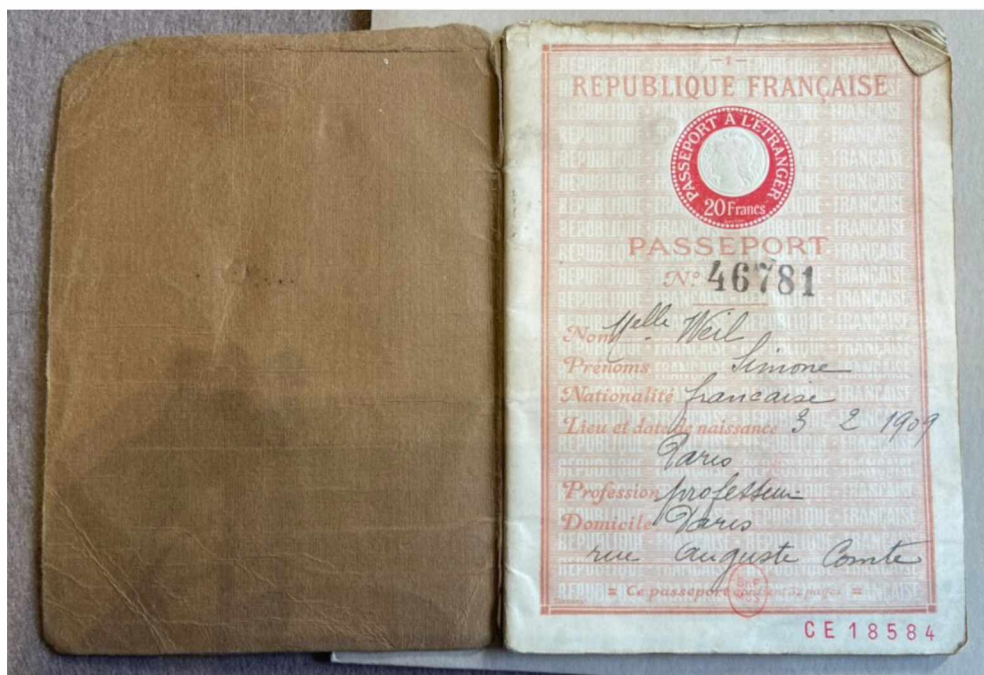 - 1 -
REPUBLIQUE FRANÇAISE
PASSEPORT A L'ETRANGER
20 Francs
PASSEPORT
No. 46781
Nom Melle Weil
Prénoms Simone
Nationalité francaise
Lieu et date de naissance 3 2 1909
Paris
Profession professeur
Domicile Paris
rue Auguste Comte
Ce passeport contient 32 pages
CE 18584